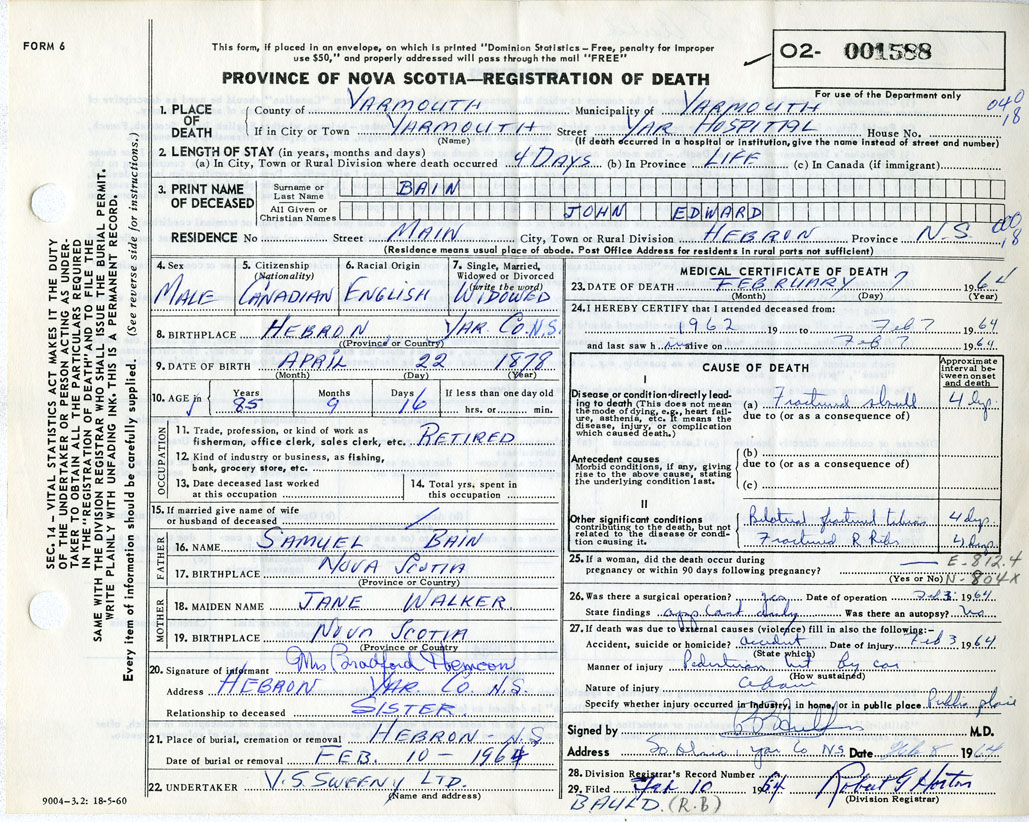 FORM 6
This form, if placed in an envelope, on which is printed "Dominion Statistics – Free, penalty for improper
use $50," and properly addressed will pass through the mail "FREE"
PROVINCE OF NOVA SCOTIA—REGISTRATION OF DEATH
O2- 001588
For use of the Department only
040
18
1. PLACE OF DEATH County of YARMOUTH Municipality of YARMOUTH
If in City or Town YARMOUTH Street YAR HOSPITAL House No.
(Name) (If death occurred in a hospital or institution, give the name instead of street and number)
2. LENGTH OF STAY (in years, months and days)
(a) In City, Town or Rural Division where death occurred 4 DAYS (b) In Province LIFE (c) In Canada (if immigrant)
3. PRINT NAME OF DECEASED Surname or Last Name BAIN
All Given or Christian Names JOHN EDWARD
000
18
RESIDENCE No Street MAIN City, Town or Rural Division HEBRON Province N.S
(Residence means usual place of abode. Post Office Address for residents in rural parts not sufficient)
4. Sex MALE
5. Citizenship (Nationality) CANADIAN
6. Racial Origin ENGLISH
7. Single, Married, Widowed or Divorced (write the word) WIDOWED
8. BIRTHPLACE HEBRON YAR CO. N.S.
(Province or Country)
9. DATE OF BIRTH APRIL 22 1878
(Month) (Day) (Year)
10. AGE in Years 85 Months 9 Days 16 If less than one day old hrs. or min.
OCCUPATION
11. Trade, profession, or kind of work as
fisherman, office clerk, sales clerk, etc. RETIRED
12. Kind of industry or business, as fishing,
bank, grocery store, etc.
13. Date deceased last worked
at this occupation
14. Total yrs. spent in
this occupation
15. If married give name of wife
or husband of deceased
FATHER
16. NAME SAMUEL BAIN
17. BIRTHPLACE NOVA SCOTIA
(Province or Country)
MOTHER
18. MAIDEN NAME JANE WALKER
19. BIRTHPLACE NOVA SCOTIA
(Province or Country)
20. Signature of informant Mrs Bradford
Address HEBRON YAR CO. N.S.
Relationship to deceased SISTER.
21. Place of burial, cremation or removal HEBRON - N.S
Date of burial or removal FEB. 10 - 1964
22. UNDERTAKER V.S. SWEENY LTD.
(Name and address)
MEDICAL CERTIFICATE OF DEATH
23. DATE OF DEATH FEBRUARY 7 1964
(Month) (Day) (Year)
24. I HEREBY CERTIFY that I attended deceased from:
1962 19 to Feb 7 1964
and last saw h im alive on Feb 7 1964
CAUSE OF DEATH
Approximate interval between onset and death
I
Disease or condition directly leading to death (This does not mean
the mode of dying, e.g., heart failure, asthenia, etc. It means the
disease, injury, or complication
which caused death.)
(a) Fractured skull 4 dys.
due to (or as a consequence of)
Antecedent causes
Morbid conditions, if any, giving
rise to the above cause, stating
the underlying condition last.
(b)
due to (or as a consequence of)
(c)
II
Other significant conditions
contributing to the death, but not
related to the disease or condition causing it.
Bilateral fractured tibias 4 dys.
Fractured R Ribs 4 dys.
25. If a woman, did the death occur during
pregnancy or within 90 days following pregnancy?
(Yes or No)
E-812.4
N-804X
26. Was there a surgical operation? yes Date of operation Feb 3 1964
State findings Was there an autopsy? No
27. If death was due to external causes (violence) fill in also the following:-
Accident, suicide or homicide? accident Date of injury Feb 3 1964
(State which)
Manner of injury Pedestrian hit by car
(How sustained)
Nature of injury above
Specify whether injury occurred in industry, in home, or in public place Public place
Signed by M.D.
Address Yar Co NS Date Feb 8 1964
28. Division Registrar's Record Number
29. Filed Feb 10 1964 Robert G Horton
(Division Registrar)
BAULD. (R.B)
SEC. 14 – VITAL STATISTICS ACT MAKES IT THE DUTY
OF THE UNDERTAKER OR PERSON ACTING AS UNDERTAKER TO OBTAIN ALL THE PARTICULARS REQUIRED
IN THE "REGISTRATION OF DEATH" AND TO FILE THE
SAME WITH THE DIVISION REGISTRAR WHO SHALL ISSUE THE BURIAL PERMIT.
WRITE PLAINLY WITH UNFADING INK. THIS IS A PERMANENT RECORD.
Every item of information should be carefully supplied. (See reverse side for instructions.)
9004-3.2: 18-5-60